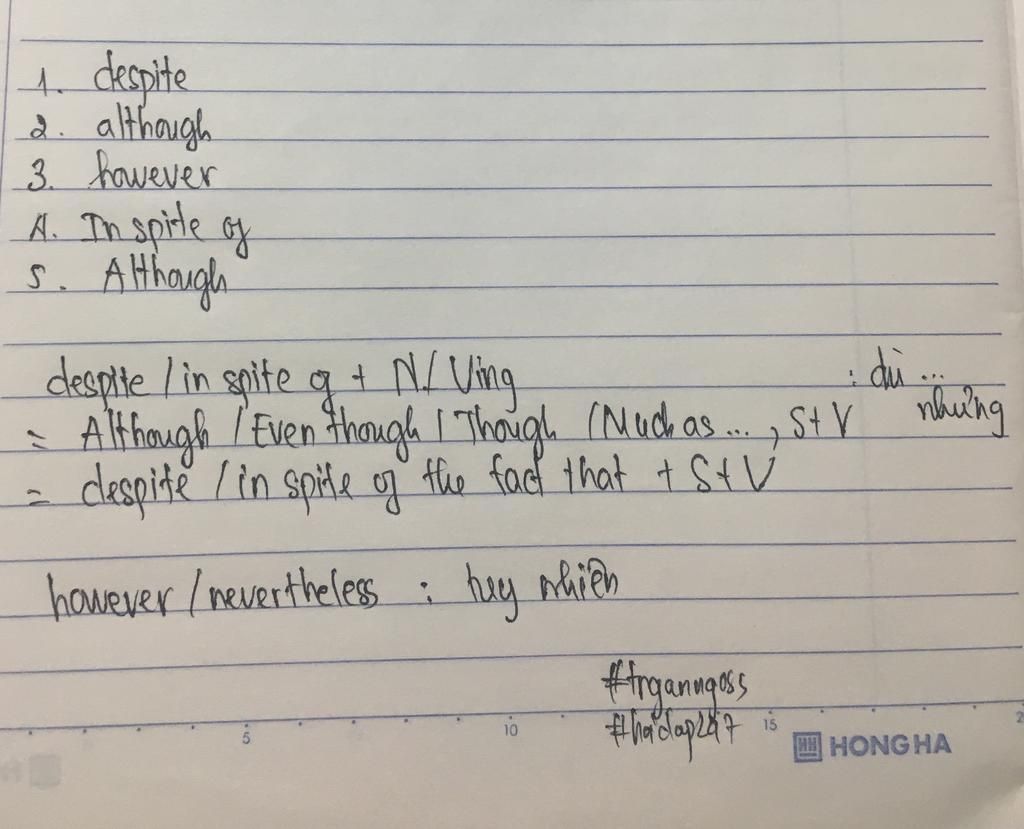 1. despite
2. although
3. however
4. In spite of
5. Although
despite / in spite of + N / Ving : dù ... nhưng
= Although / Even though / Though / Much as ... , S + V
= despite / in spite of the fact that + S + V
however / nevertheless : tuy nhiên
#trganngoss
#hoidap247
5 10 15 2
HH HONG HA